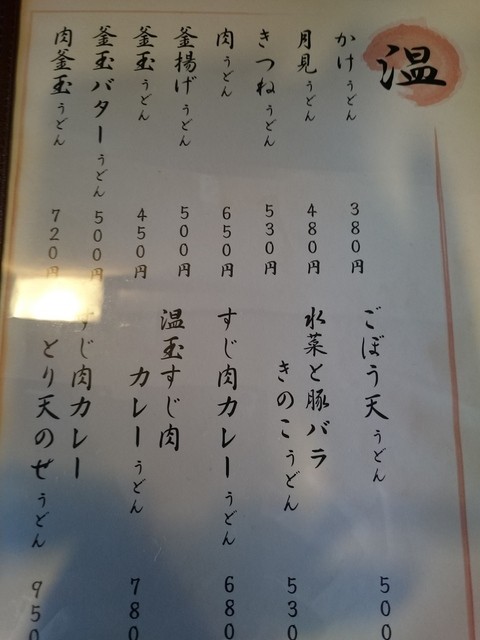 温
かけうどん 380円
月見うどん 480円
きつねうどん 530円
肉うどん 650円
釜揚げうどん 500円
釜玉うどん 450円
釜玉バターうどん 500円
肉釜玉うどん 720円
ごぼう天うどん 500
水菜と豚バラ
きのこうどん 530
すじ肉カレーうどん 680
温玉すじ肉
カレーうどん 780
すじ肉カレー
とり天のせうどん 950